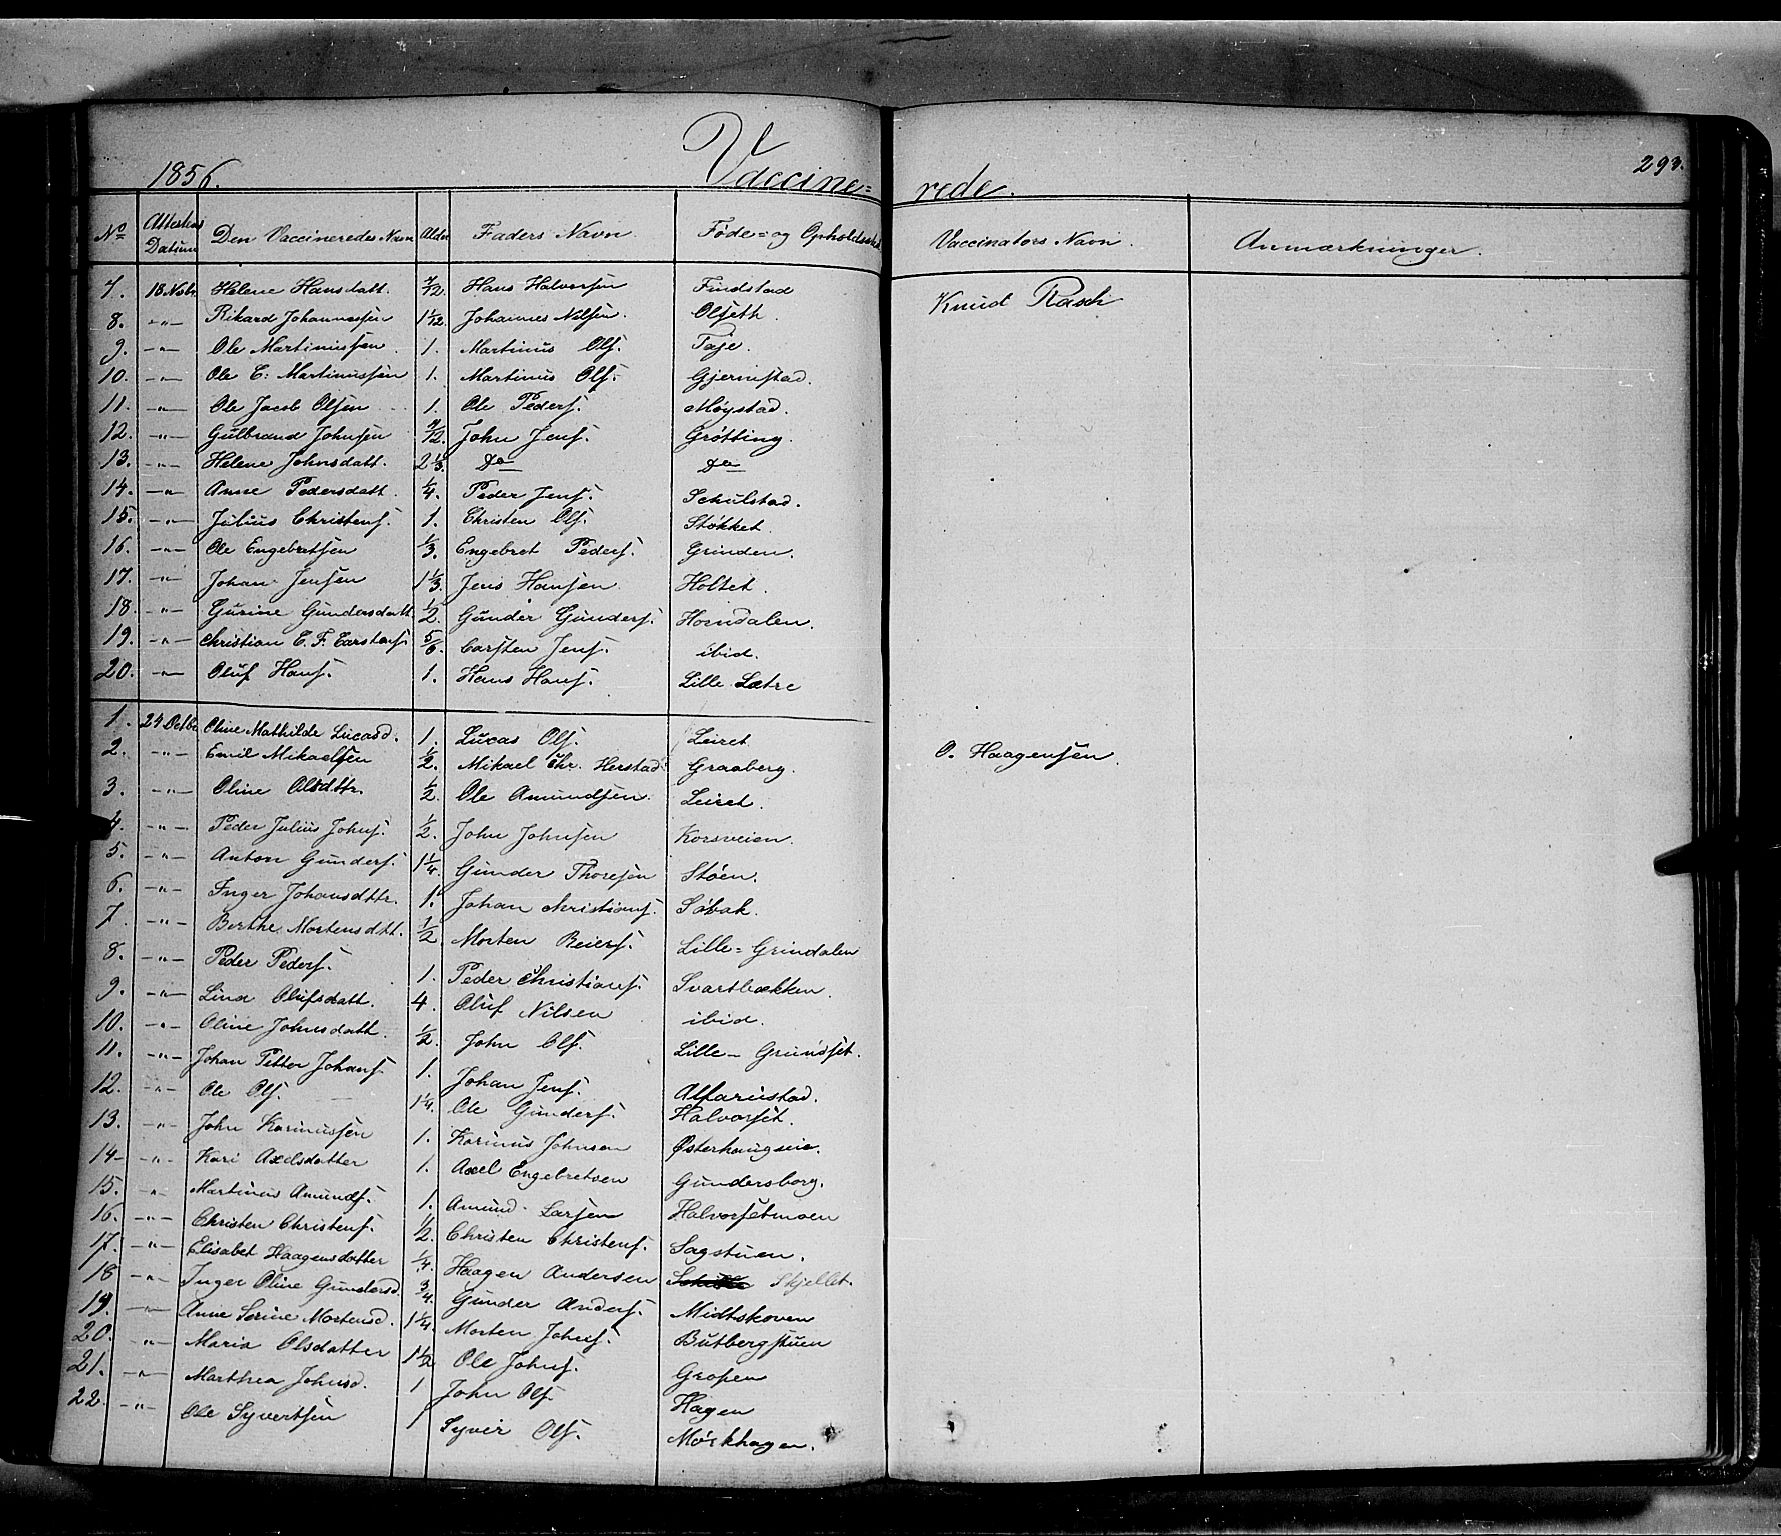 1856. Vaccine= rede. 293.
No Attestens Datum Den Vaccineredes Navn Alder Faders Navn Føde= og Opholdssted Vaccinators Navn. Anmærkninger.
7. 18 Novbr Helene Hansdatt. 7/12. Hans Halvorsen Findstad Knud Rasch
8. -"- Rikard Johannessen 1 1/12. Johannes Nilsen. Olseth.
9. -"- Ole Martinussen 1. Martinus Ols. Faje.
10. -"- Ole E. Martinussen 1. Martinus Ols. Gjernstad.
11. -"- Ole Jacob Olsen 1. Ole Peders. Møystad.
12. -"- Gulbrand Johnsen 7/12. John Jens. Grøtting.
13. -"- Helene Johnsdatt. 2 1/3. Do Do
14. -"- Anne Pedersdatt. 1/4. Peder Jens. Schulstad.
15. -"- Julius Christens. 1. Christen Ols. Støkket.
16. -"- Ole Engebretsen 1/3. Engebret Peders. Grinden.
17. -"- Johan Jensen 1 1/3. Jens Hansen Holtet.
18. -"- Gurine Gundersdatt 1/2. Gunder Gunders. Horndalen.
19. -"- Christian C. F. Carstens. 5/6. Carsten Jens. ibid.
20. -"- Oluf Hans. 1. Hans Hans. Lille Sætre
1. 24 Octbr Oline Mathilde Lucasd. 1. Lucas Ols. Leiret
2. -"- Emil Mikaelsen 1/2. Mikael Chr. Herstad. Graaberg. O. Haagensen.
3. -"- Oline Olsdttr. 1/2. Ole Amundsen. Leiret.
4. -"- Peder Julius Johns. 1/2. John Johnsen Korsveien.
5. -"- Anton Gunders. 1 1/4. Gunder Thoresen Støen.
6. -"- Inger Johansdttr. 1. Johan Christians. Søbak.
7. -"- Berthe Mortensdtt. 1/2 Morten Reiers. Lille=Grindalen
8. -"- Peder Peders. 1. Peder Christians. Svartbækken.
9. -"- Lina Olufsdatt. 4. Oluf Nilsen ibid.
10. -"- Oline Johnsdatt. 1/2. John Ols. Lille-Grundset.
11. -"- Johan Petter Johans. 1. Johan Jens. Alfariistad.
12. -"- Ole Ols. 1 1/4. Ole Gunders. Halvorset.
13. -"- John Karinussen 1. Karinus Johnsen Østerhaugseie.
14- -"- Kari Axelsdatter 1. Axel Engebretsen Gundersborg.
15. -"- Martinus Amunds. 1. Amund Larsen Halvorsetmoen
16. -"- Christen Christens. 1/2. Christen Christens. Sagstuen.
17. -"- Elisabet Haagensdatter 1/4. Haagen Andersen Skjellet.
18 -"- Inger Oline Gundersd 3/4. Gunder Anders. Midtskoven
19. -"- Anne Serine Mortensd. 1 1/4. Morten Johns. Butbergstuen
20. -"- Maria Olsdatter 1 1/2 Ole Johns. Grosen
21. -"- Marthea Johnsd. 1 John Ols. Hagen
22. -"- Ole Syvertsen 1 Syver Ols. Mørkhagen.